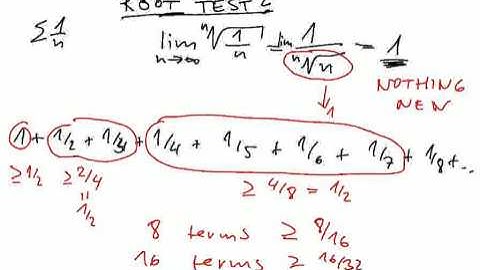 ROOT TEST
∑ 1/n lim n→∞ ⁿ√(1/n) = lim 1/ⁿ√n = 1
→1 NOTHING NEW
1 + 1/2 + 1/3 + 1/4 + 1/5 + 1/6 + 1/7 + 1/8 + ...
≥ 1/2 ≥ 2/4 = 1/2 ≥ 4/8 = 1/2
8 terms ≥ 8/16
16 terms ≥ 16/32